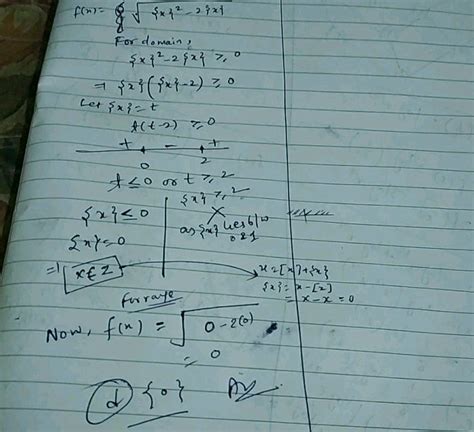 f(x) = √{x}² - 2{x}
For domain,
{x}² - 2{x} ≥ 0
⇒ {x}({x} - 2) ≥ 0
Let {x} = t
t(t-2) ≥ 0
+ - +
0 2
t ≤ 0 or t ≥ 2
{x} ≤ 0
{x} = 0
⇒ x ∈ Z
{x} ≥ 2
as {x} lies b/w
0 & 1
x = [x] + {x}
{x} = x - [x]
= x - x = 0
For range
Now, f(x) = √0 - 2(0)
= 0
d {0} Ans